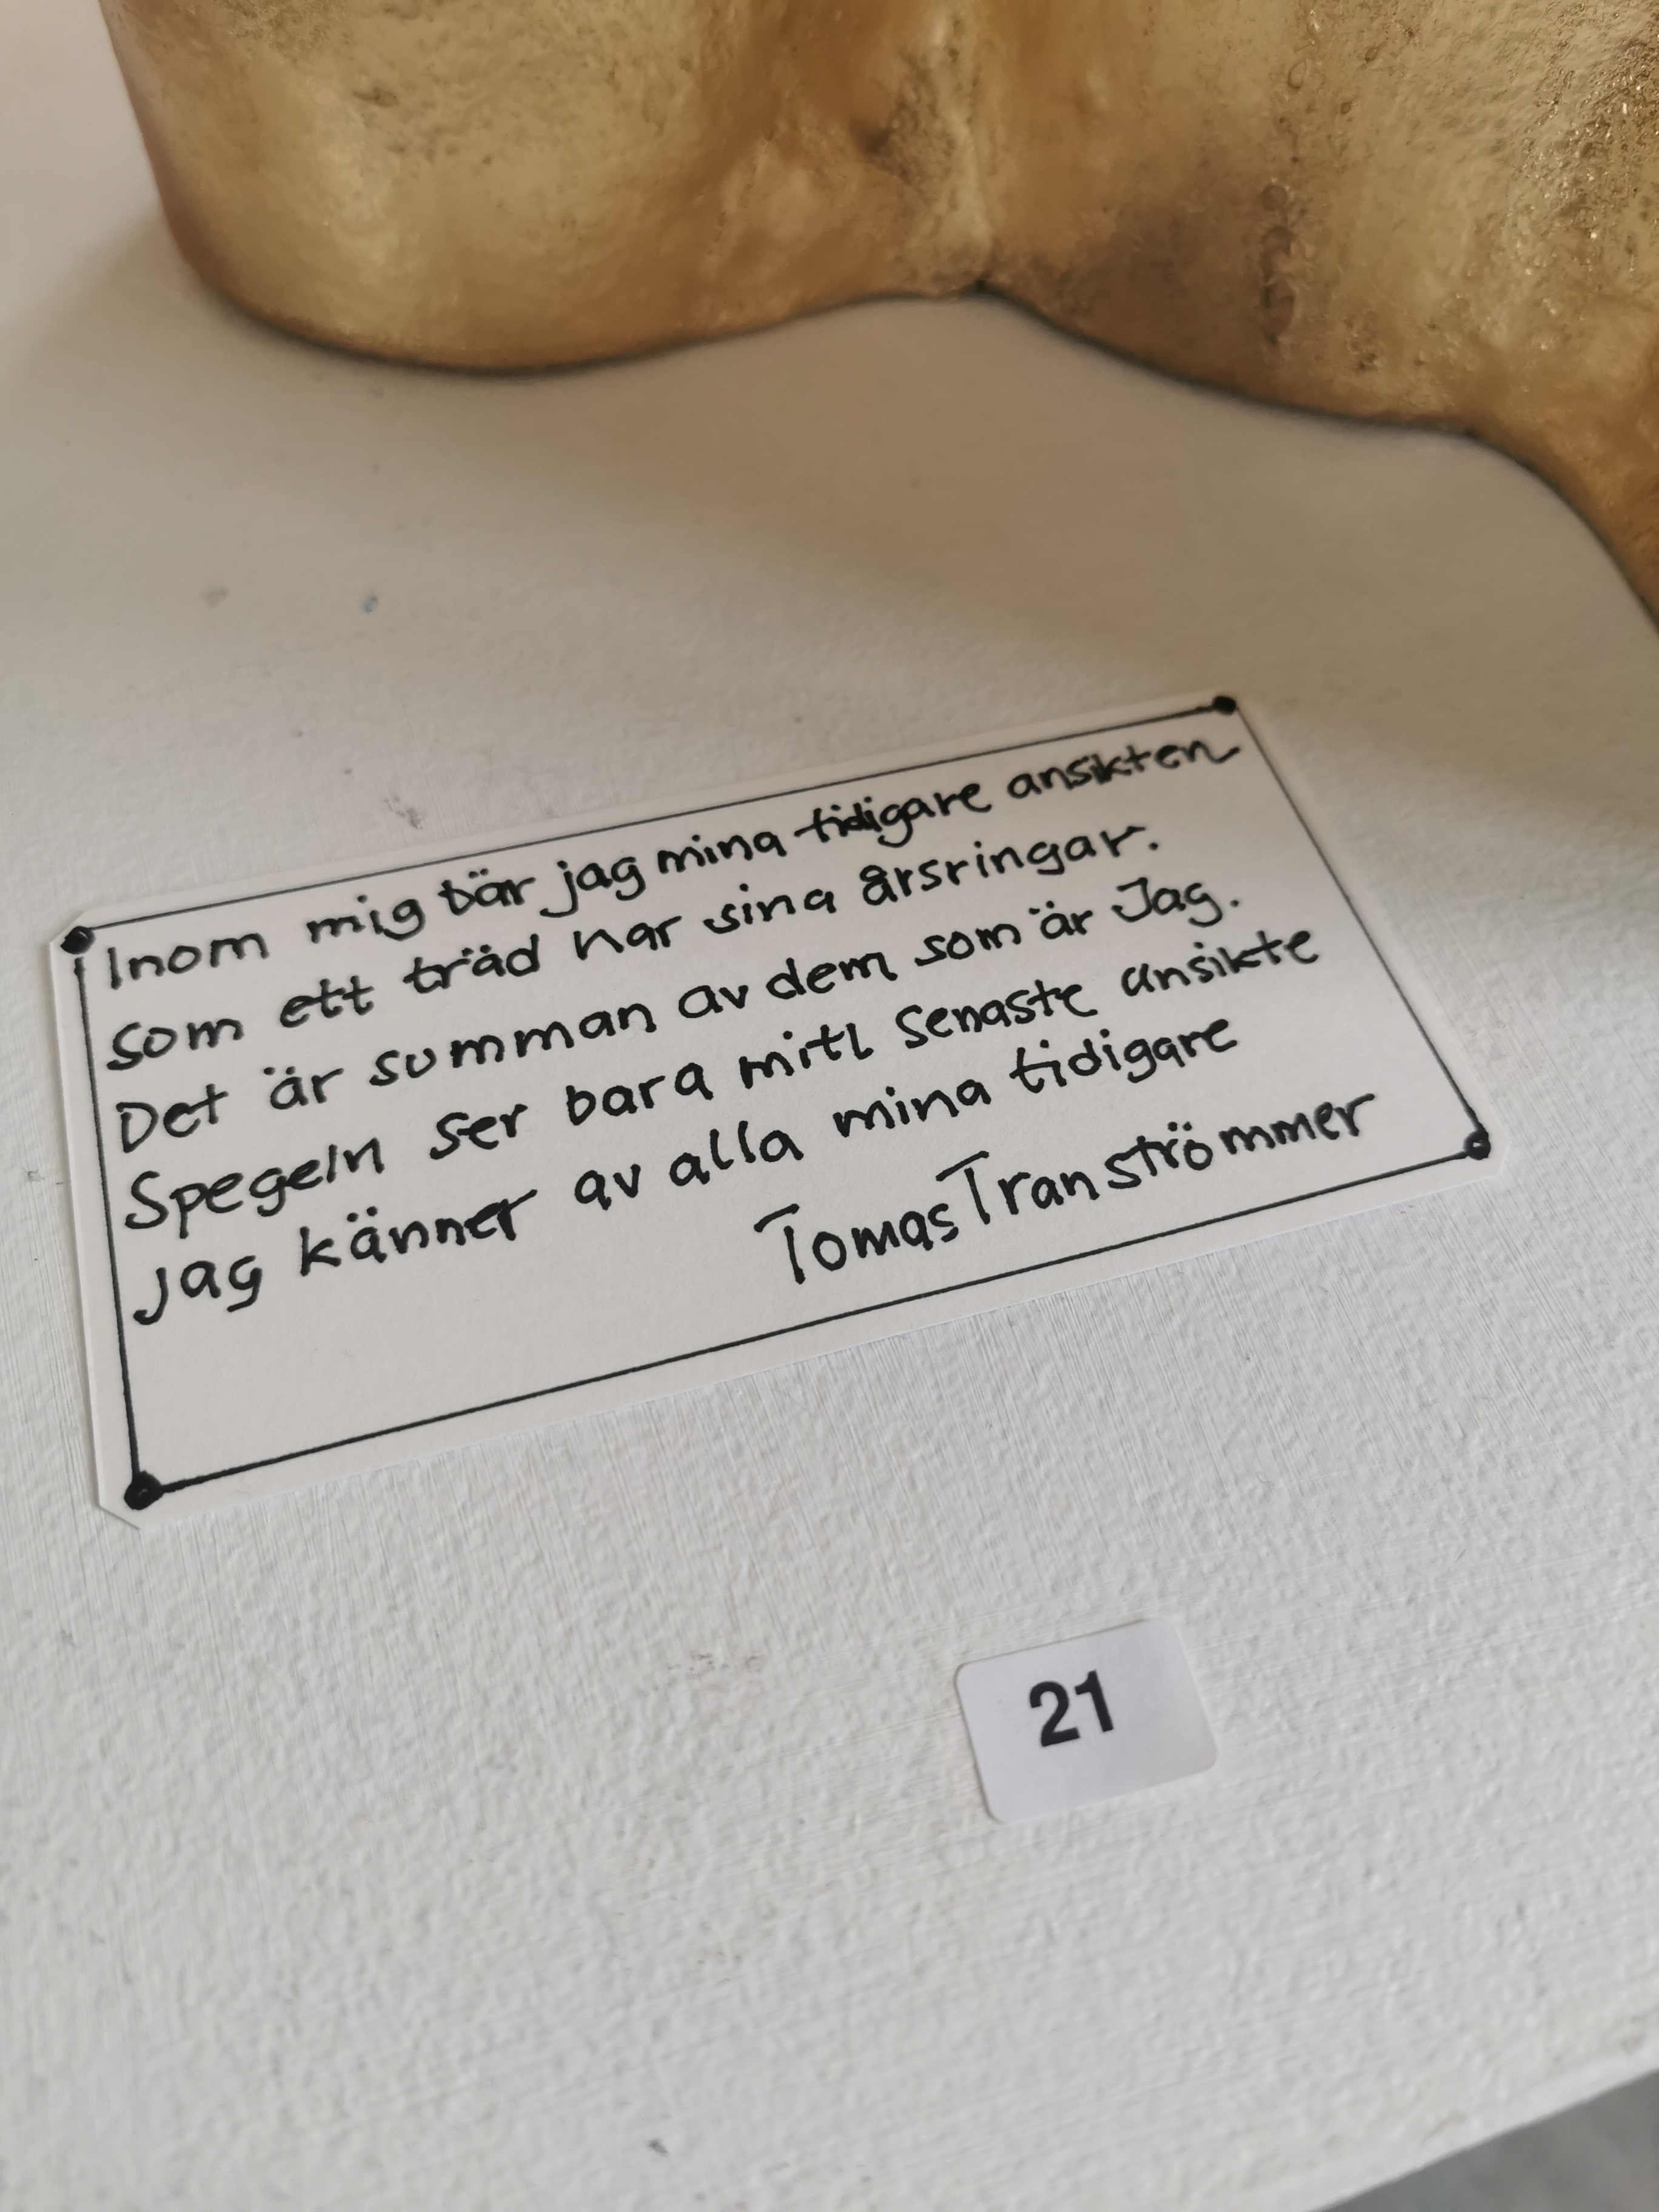 Inom mig bär jag mina tidigare ansikten
som ett träd har sina årsringar.
Det är summan av dem som är Jag.
Spegeln ser bara mitt senaste ansikte
jag känner av alla mina tidigare
Tomas Tranströmmer
21